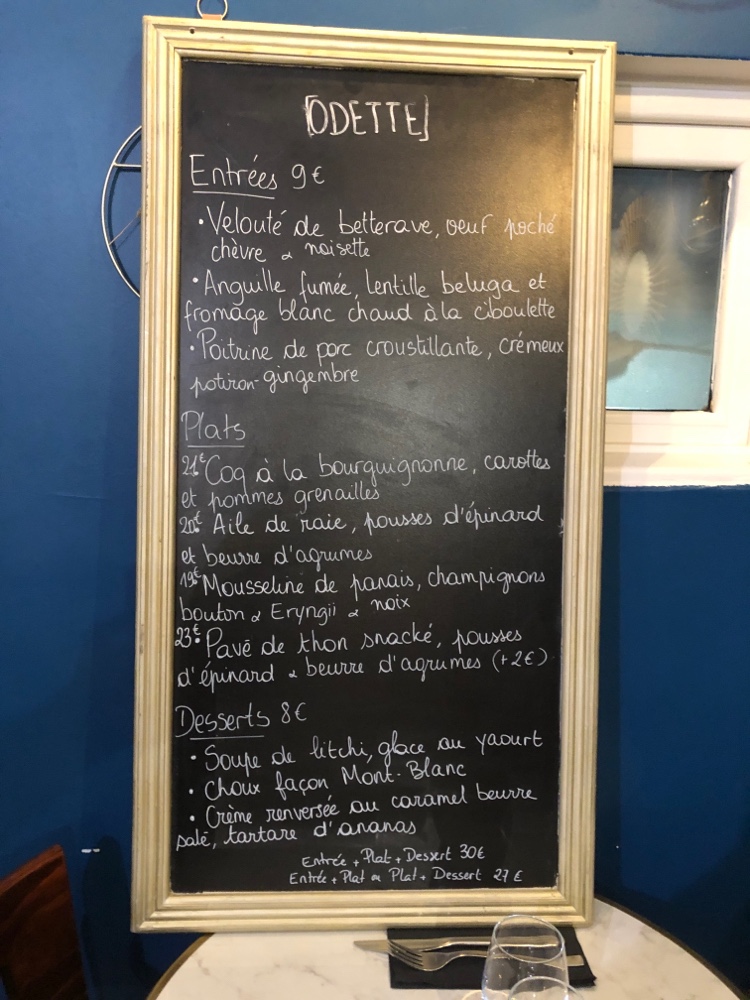 [ODETTE]
Entrées 9€
• Velouté de betterave, oeuf poché
chèvre & noisette
• Anguille fumée, lentille beluga et
fromage blanc chaud à la ciboulette
• Poitrine de porc croustillante, crémeux
potiron-gingembre
Plats
21€ Coq à la bourguignonne, carottes
et pommes grenailles
20€ Aile de raie, pousses d'épinard
et beurre d'agrumes
19€ Mousseline de panais, champignons
bouton & Eryngii & noix
23€ • Pavé de thon snacké, pousses
d'épinard & beurre d'agrumes (+2€)
Desserts 8€
• Soupe de litchi, glace au yaourt
• Choux façon Mont-Blanc
• Crème renversée au caramel beurre
salé, tartare d'ananas
Entrée + Plat + Dessert 30€
Entrée + Plat ou Plat + Dessert 27€